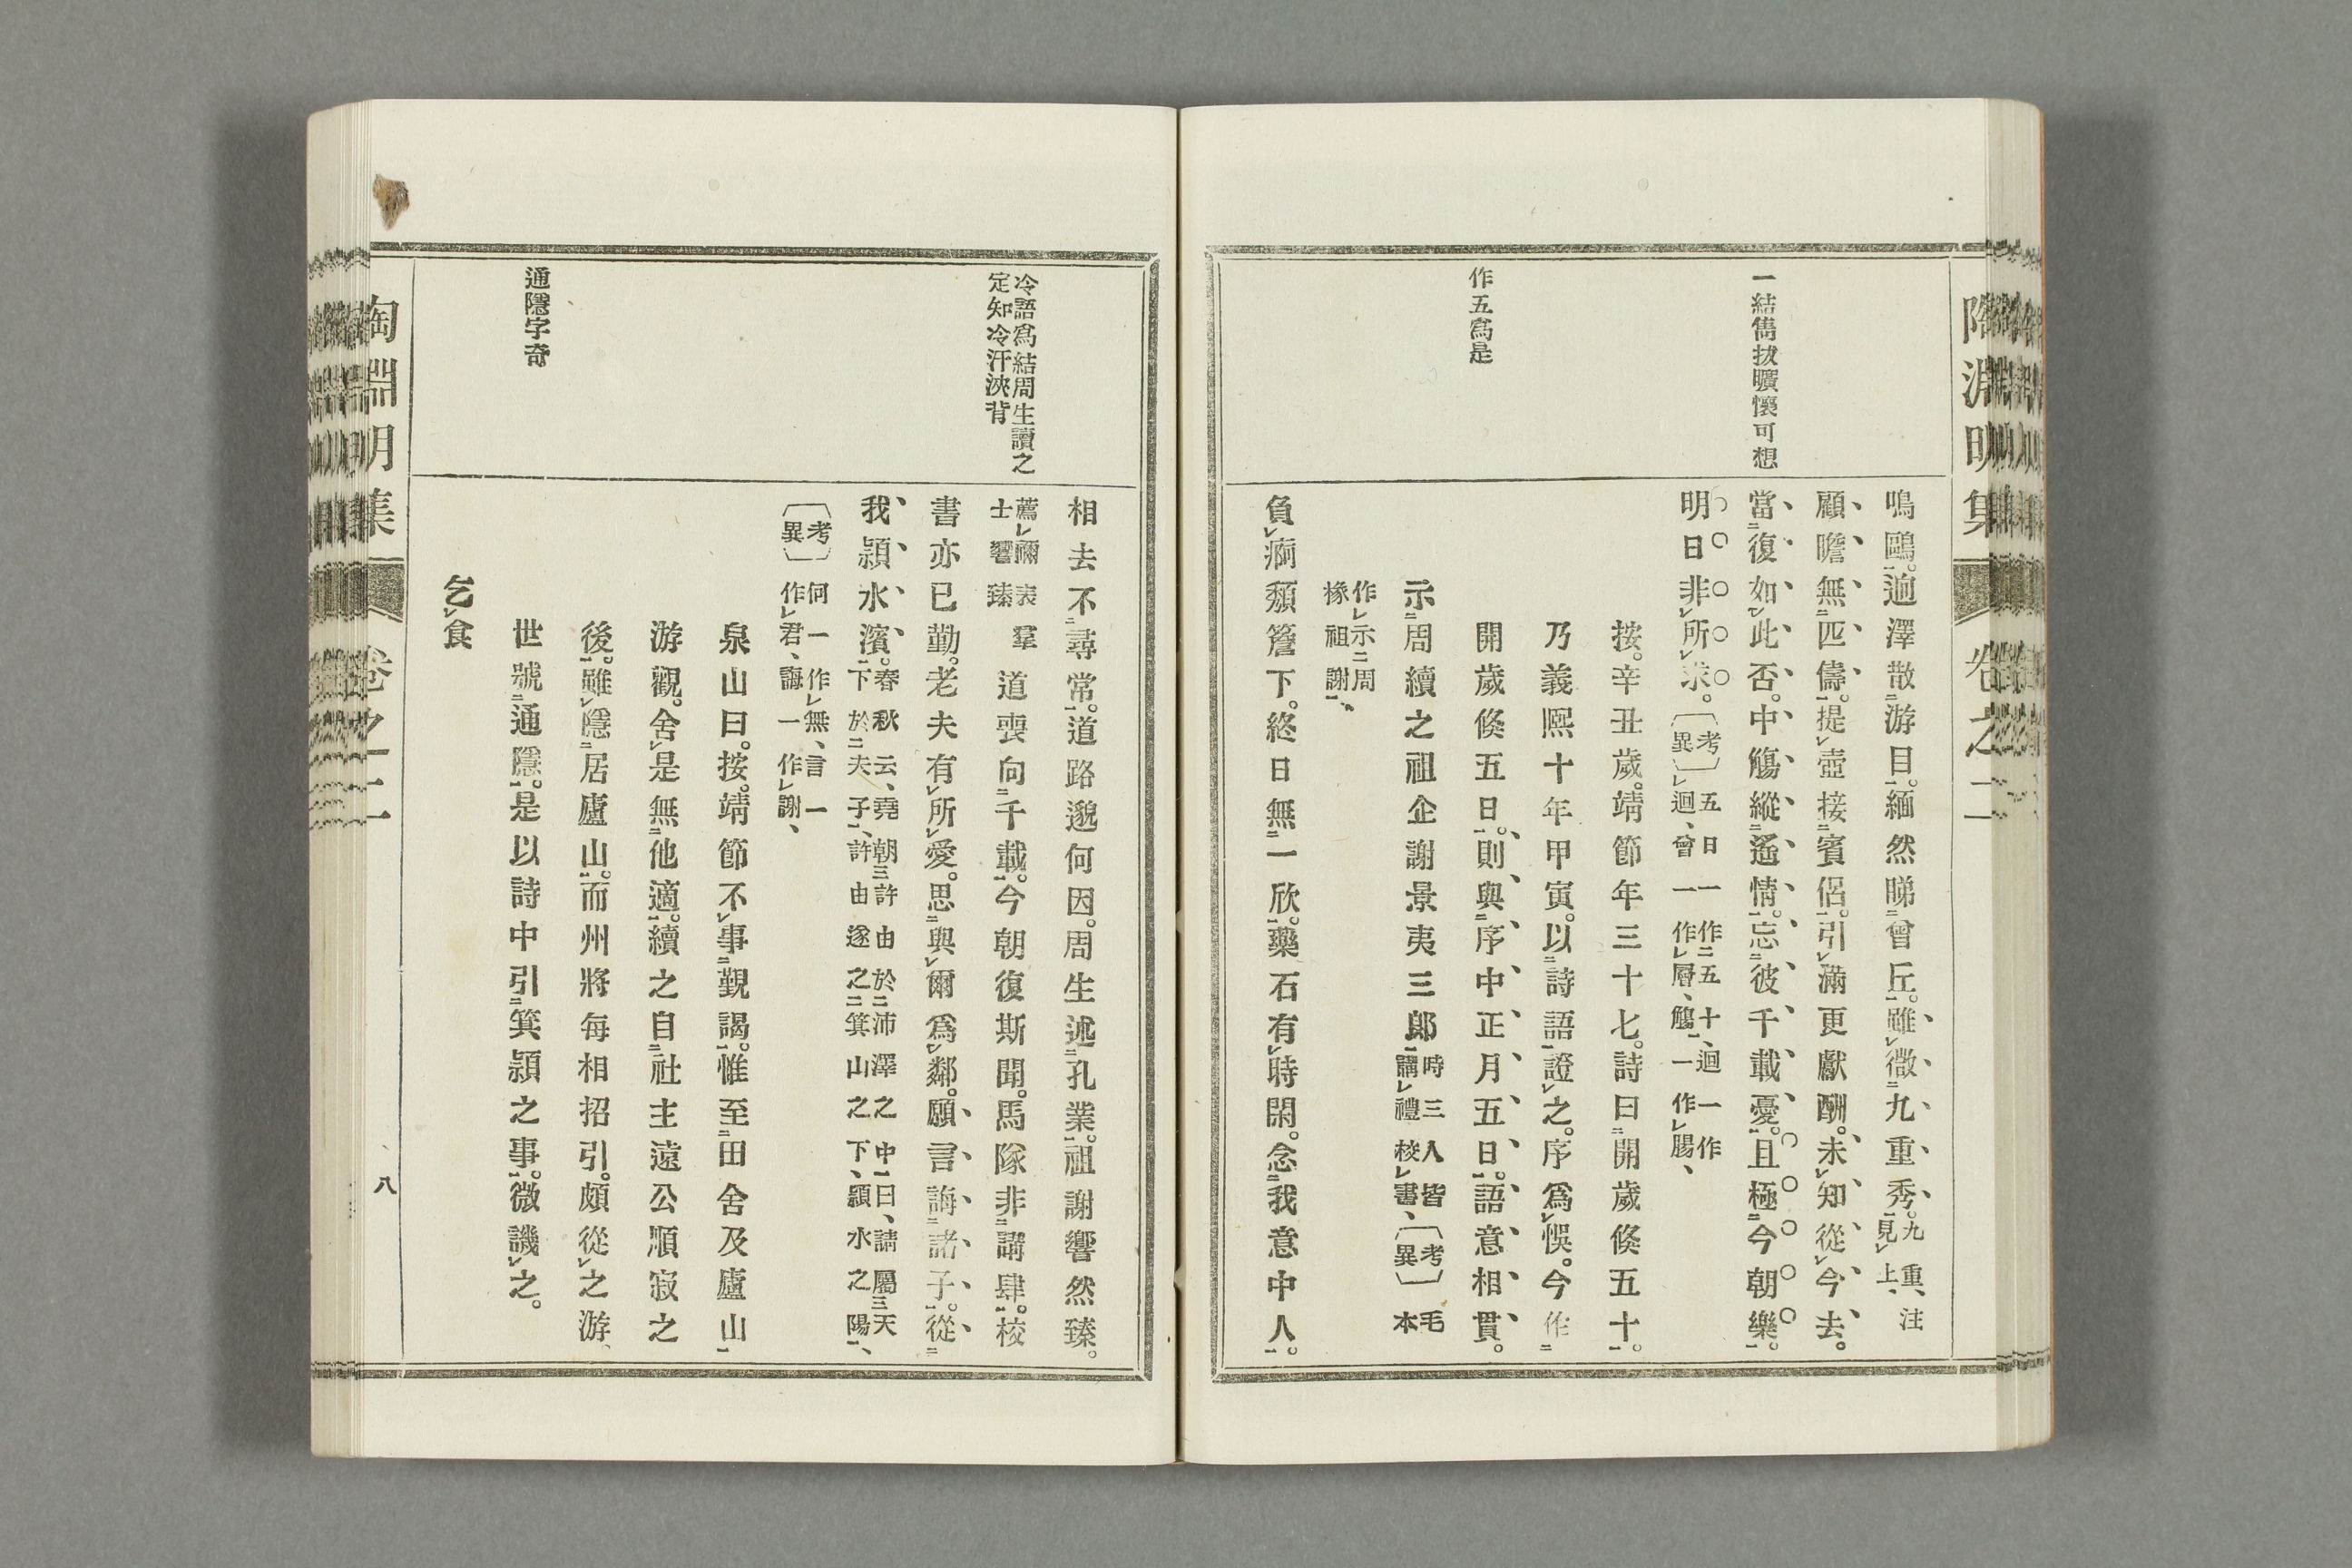 陶淵明集 卷之二
一結雋拔曠懷可想
作五爲是
鳴鷗。逈澤散游目。緬然睇曾丘。雖微九重秀。九重、注見上、
顧瞻無匹儔。提壺接賓侶。引滿更獻酬。未知從今去。
當復如此否。中觴縱遙情。忘彼千載憂。且極今朝樂。
明日非所求。〔考異〕五日一作五十、迴一作逥、曾一作層、觴一作腸、
按。辛丑歲。靖節年三十七。詩曰開歲倏五十。
乃義熙十年甲寅。以詩語證之。序爲悞。今作
開歲倏五日。則與序中正月五日。語意相貫。
示周續之祖企謝景夷三郎時三人皆講禮校書、〔考異〕毛本
作示周掾祖謝、
負痾頹簷下。終日無一欣。藥石有時閑。念我意中人。
冷語爲結周生讀之
定知冷汗浹背
通隱字奇
相去不尋常。道路邈何因。周生述孔業。祖謝響然臻。
薦禰表羣士響臻道喪向千載。今朝復斯聞。馬隊非講肆。校
書亦已勤。老夫有所愛。思與爾爲鄰。願言誨諸子。從
我潁水濱。春秋云、堯朝許由於沛澤之中曰、請屬天下於夫子、許由遂之箕山之下、潁水之陽、
〔考異〕何一作無、言一作君、誨一作謝、
泉山曰。按。靖節不事覲謁。惟至田舍及廬山
游觀。舍是無他適。續之自社主遠公順寂之
後。雖隱居廬山。而州將每相招引。頗從之游、
世號通隱。是以詩中引箕潁之事。微譏之。
乞食
陶淵明集 卷之二
八